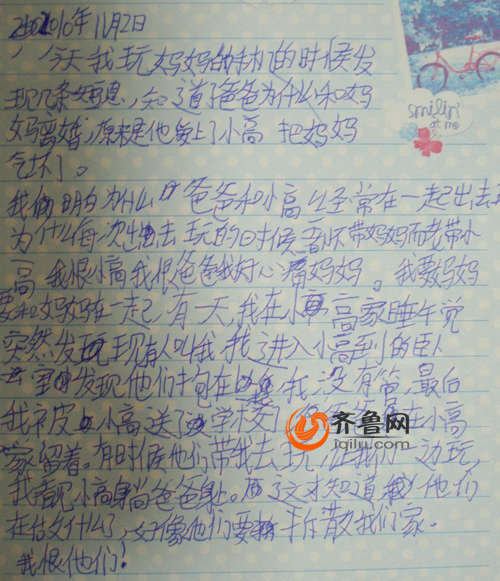 2010年11月2日
smilin'
at me
今天我玩妈妈的手机的时候发
现几条短息,知道了爸爸为什么和妈
妈离婚,原来是他爱上了小高 把妈妈
气坏了。
我明白为什么 爸爸和小高经常在一起出去
为什么每次出去玩的时候 不带妈妈而老带小
高 我恨小高我恨爸爸我好心疼妈妈。我要妈妈
要和妈妈在一起 有一天,我在小高家睡午觉
突然发现有人叫我,我进入小高的卧
室发现他们抱在 我没有管,最后
我被 小高送了学校 在小高
家留着。有时候他们带我去玩,让我 一边玩,
我看见小高 爸爸身上。 才知道 他们
在 什么了,好像他们要拆散我们家。
我恨他们!
齐鲁网
iqilu.com